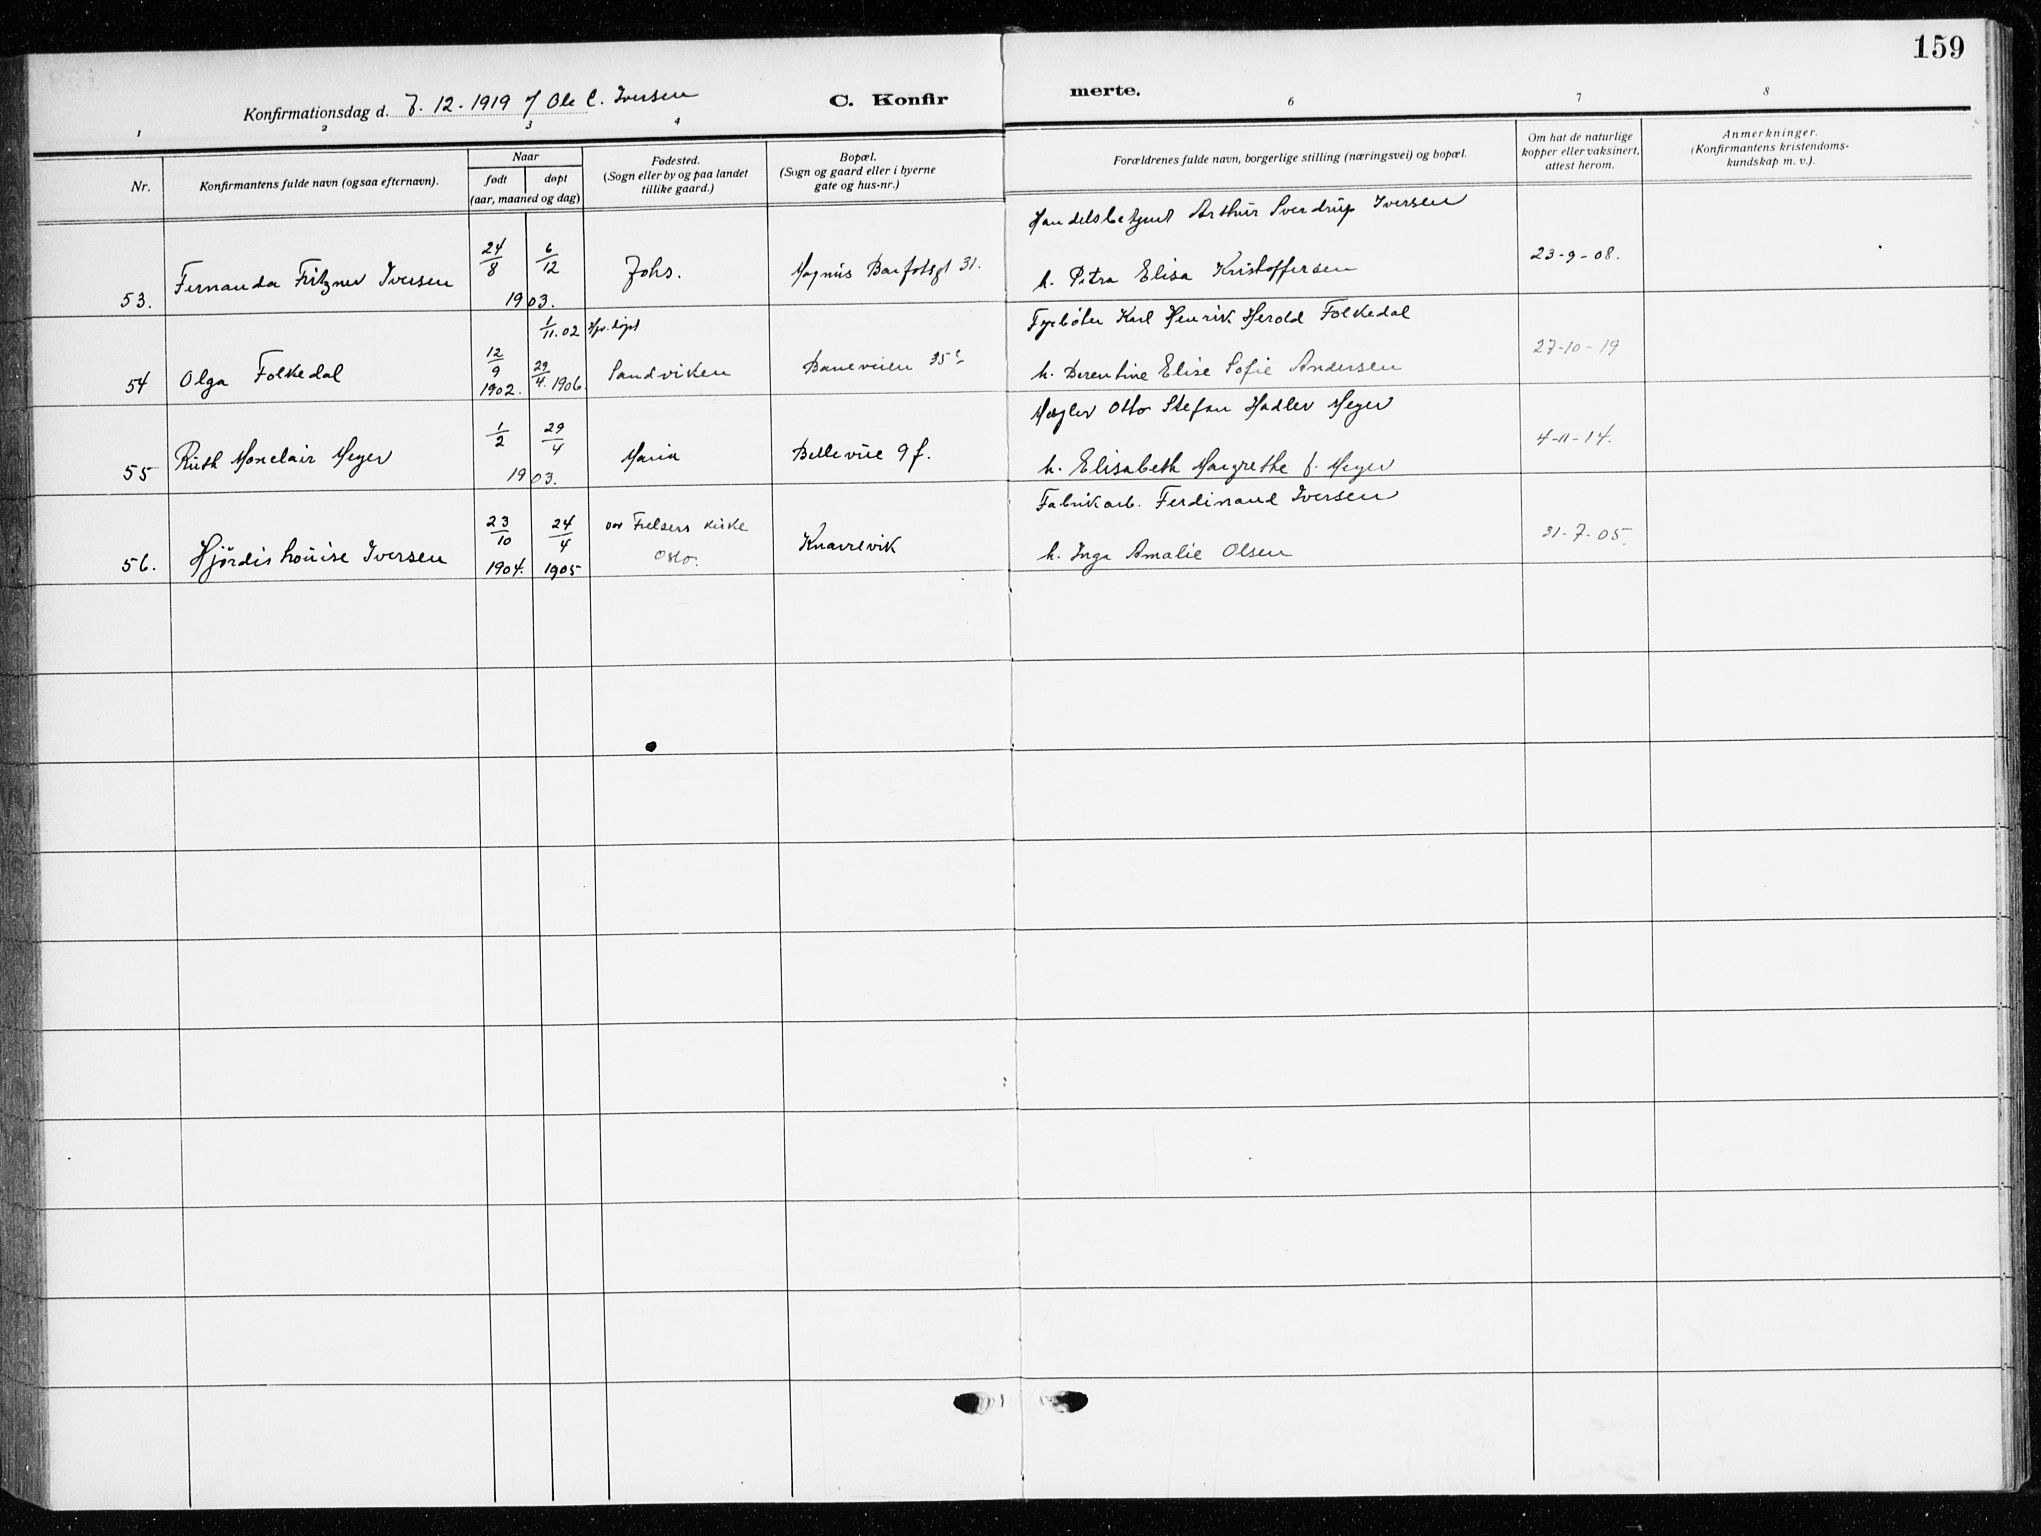 159
Konfirmationsdag d. 7. 12. 1919 / Ole C. Iversen
C. Konfirmerte.
1 2 3 4 6 7 8
Nr.
Konfirmantens fulde navn (ogsaa efternavn).
Naar
født
døpt
(aar, maaned og dag)
Fødested.
(Sogn eller by og paa landet
tillike gaard.)
Bopæl.
(Sogn og gaard eller i byerne
gate og hus-nr.)
Forældrenes fulde navn, borgerlige stilling (næringsvei) og bopæl.
Om hat de naturlige
kopper eller vaksinert,
attest herom.
Anmerkninger.
(Konfirmantens kristendoms-
kundskap m. v.).
53. Fernanda Fritzner Iversen 24/8 6/12 1903. Johs. Magnus Barfotsgt 31.
Handelsbetjent Arthur Sverdrup Iversen
h. Petra Elisa Kristoffersen
23-9-08.
54 Olga Folkedal 12/9 1902. 1/11.02 Hj. døpt 29/4. 1906. Sandviken Baneveien 35
Fyrbøter Karl Henrik Herold Folkedal
h. Berentine Elise Sofie Andersen
27-10-19
55 Ruth Monclair Meyer 1/2 29/4 1903. Maria Bellevue 9 f.
Mægler Otto Stefan Hadler Meyer
h. Elisabeth Margrethe f. Meyer
4-11-14.
56. Hjørdis Louise Iversen 23/10 1904. 24/4 1905 vor Frelsers kirke Oslo. Knarrevik
Fabrikarb. Ferdinand Iversen
h. Inga Amalie Olsen
31-7-05.